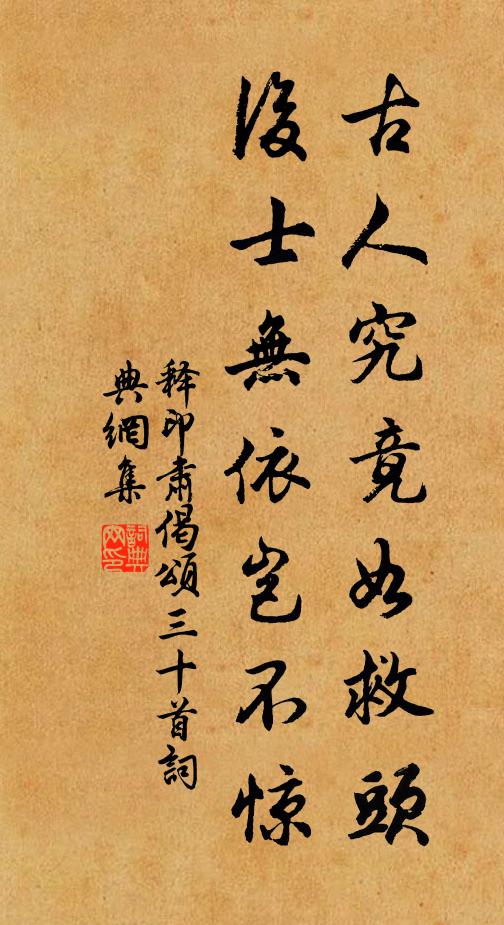 古人究竟如救頭
後士無依豈不惊
释印肃偈頌三十首詞
典網集
詞典网印